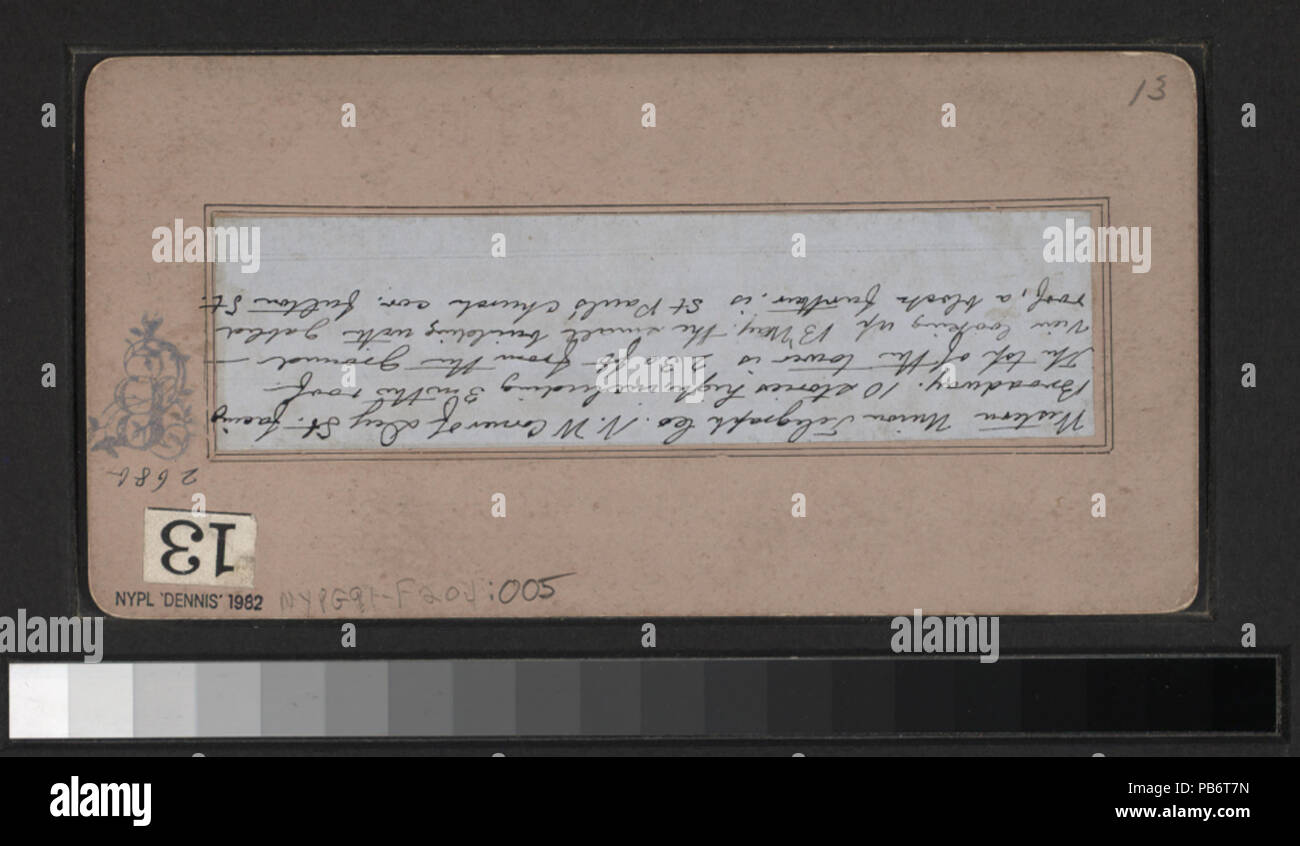 13
Western Union Telegraph Co. N.W Corner of Dey St. facing
Broadway. 10 stories high including 3 in the roof.
The top of the tower is 230 ft from the ground —
View looking up B'Way. The small building with gabled
roof, a block further, is St Pauls Church cor. Fulton St.
268
13
NYPL 'DENNIS' 1982
NYPG91-F204:005
alamy
alamy
alamy
alamy
Image ID: PB6T7N
www.alamy.com